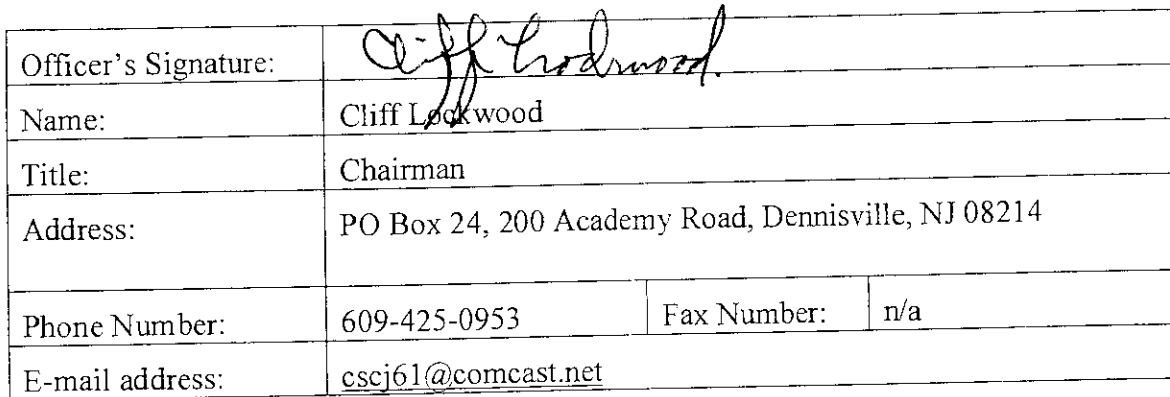 Officer's Signature: Cliff Lockwood
Name: Cliff Lockwood
Title: Chairman
Address: PO Box 24, 200 Academy Road, Dennisville, NJ 08214
Phone Number: 609-425-0953 Fax Number: n/a
E-mail address: cscj61@comcast.net